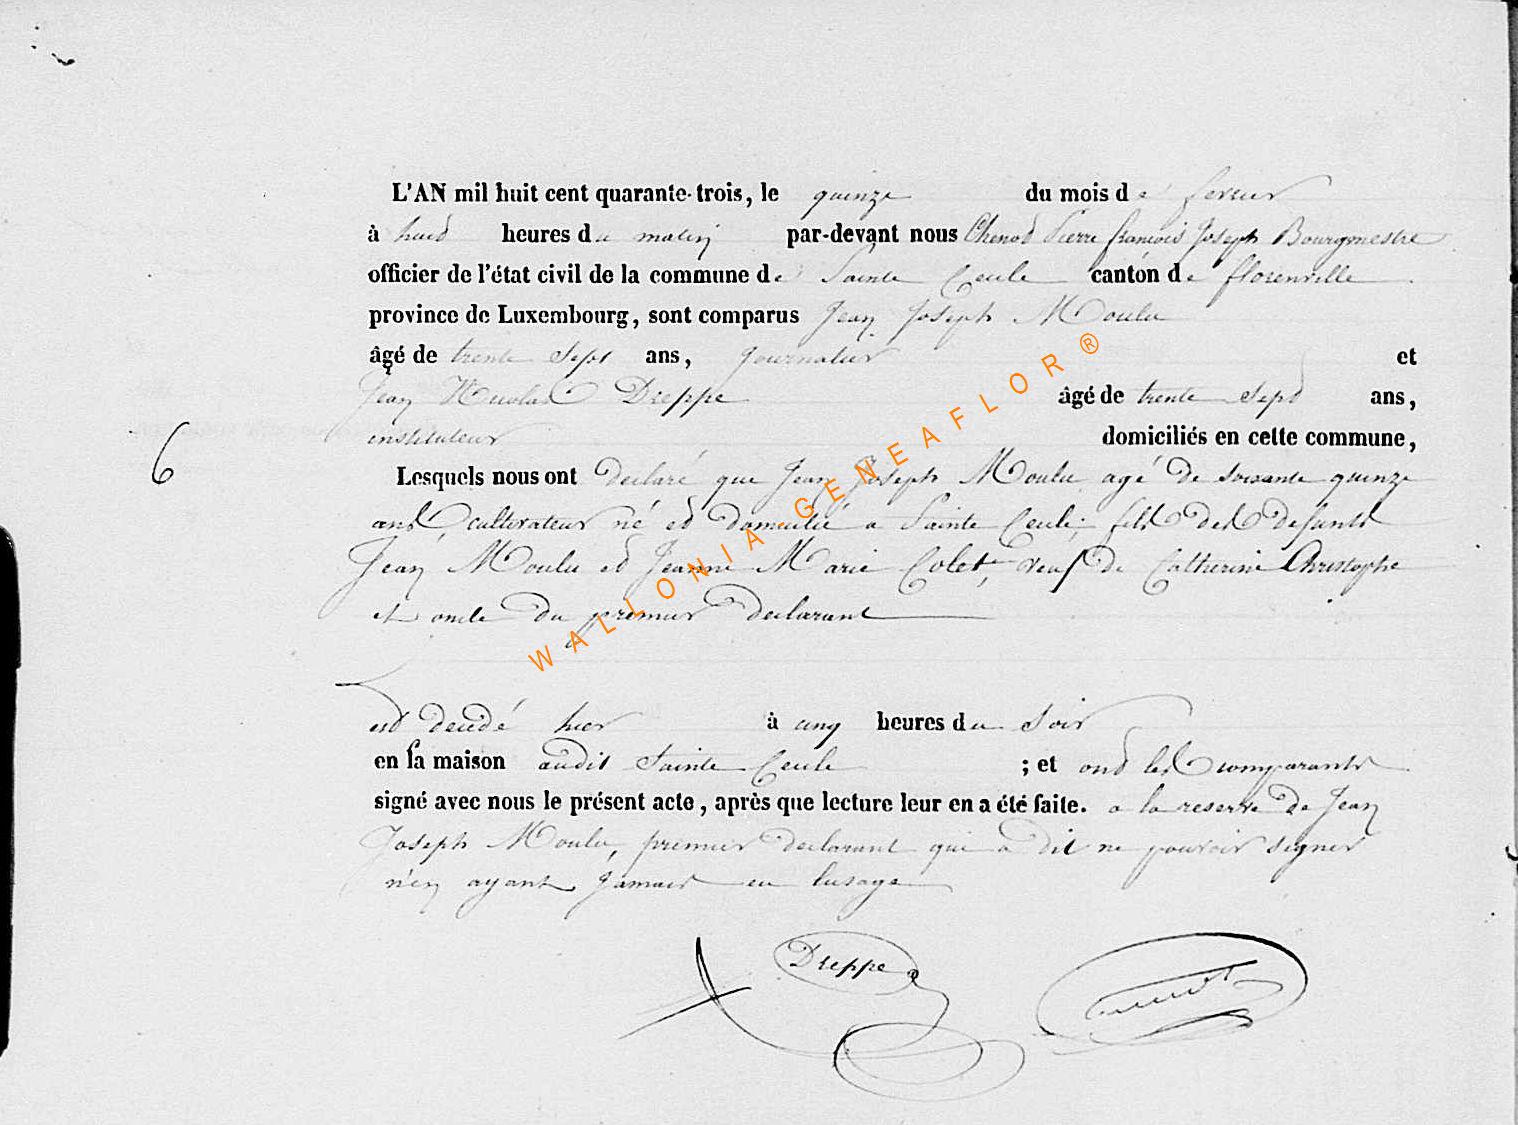 L'AN mil huit cent quarante-trois, le quinze du mois de fevrier
à huid heures du matin par-devant nous Chenot Pierre françois Joseph Bourgmestre
officier de l'état civil de la commune de Sainte Cecile canton de florenville
province de Luxembourg, sont comparus Jean Joseph Moulu
âgé de trente Sept ans, Journalier et
Jean Nicolas Dreppe âgé de trente Sept ans,
instituteur domiciliés en cette commune,
6
Lesquels nous ont declaré que Jean Joseph Moulu agé de soixante quinze
ans cultivateur né et domicilié a Sainte Cecile, fils des defunts
Jean Moulu et Jeanne Marie Colet, veuf de Catherine Christophe
et oncle du premier declarant
est decedé hier à cinq heures du Soir
en sa maison audit Sainte Cecile ; et ont les comparants
signé avec nous le présent acte, après que lecture leur en a été faite. a la reserve de Jean
Joseph Moulu, premier declarant qui a dit ne pouvoir signer
n'en ayant Jamais eu lusage
Dreppe
WALLONIA-GENEAFLOR®